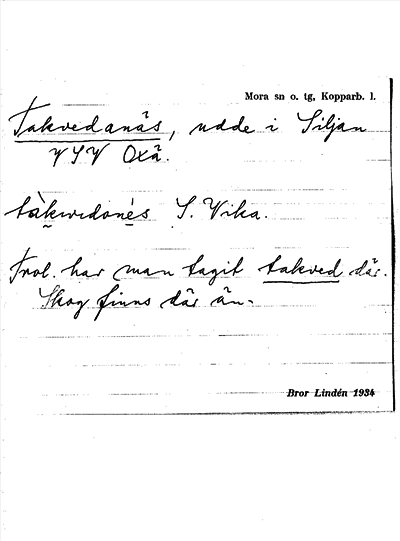 Mora sn o. tg, Kopparb. l.
Takvedanäs, udde i Siljan
VSV Oxå.
tàkwedonès S. Vika.
Trol. har man tagit takved där.
Skog finns där än.
Bror Lindén 1934